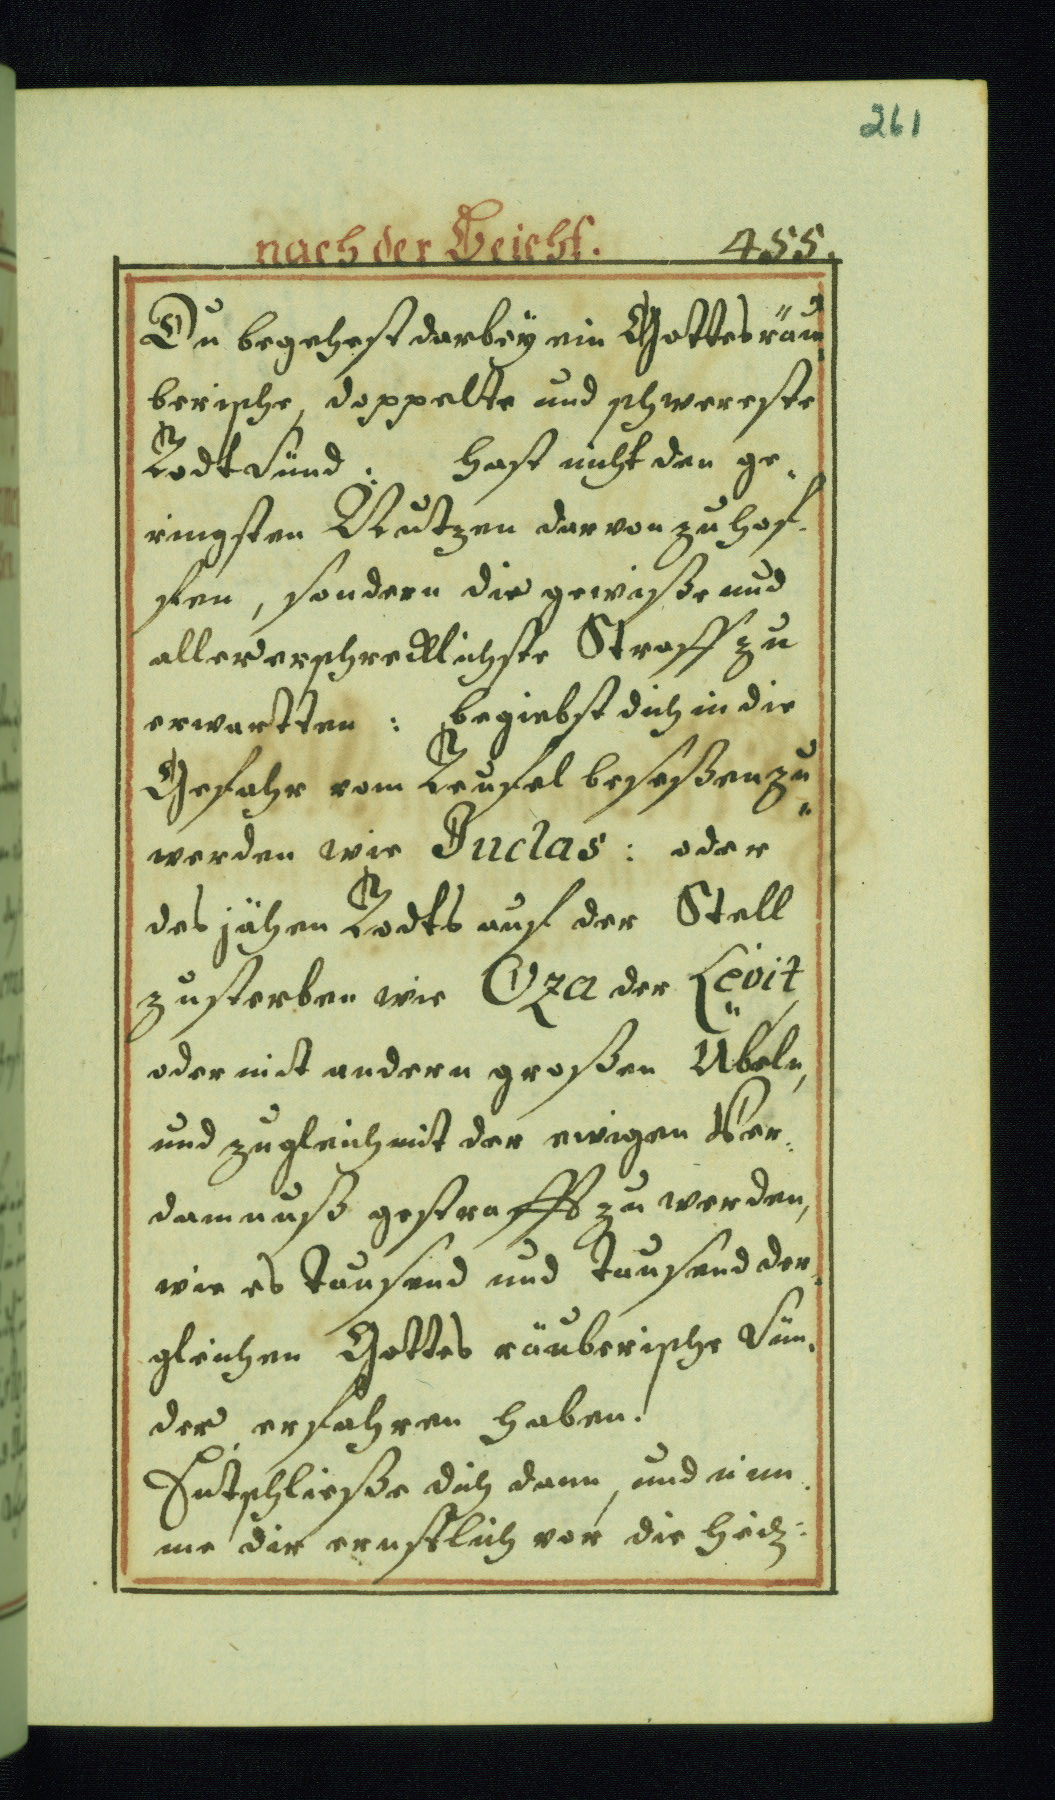 261
nach der Beicht. 455.
Du begehest darbeÿ ein Gottesräu„
berische, doppelte und schwereste
Todt Sünd: hast nicht den ge„
ringsten Nutzen darvon zu hof„
fen, sondern die gewiße und
allererschrecklichste Straff zu
erwartten: begiebst dich in die
Gefahr vom Teufel beseßen zu
werden wie Judas: oder
des jähen Todts auf der Stell
zusterben wie Oza der Levit,
oder mit andern großen Übeln,
und zugleich mit der ewigen Ver„
damnuß gestrafft zu werden,
wie es Tausend und Tausend der„
gleichen Gottes räuberische Sün„
der erfahren haben.
Entschließe dich dann, und nim„
me dir ernstlich vor die